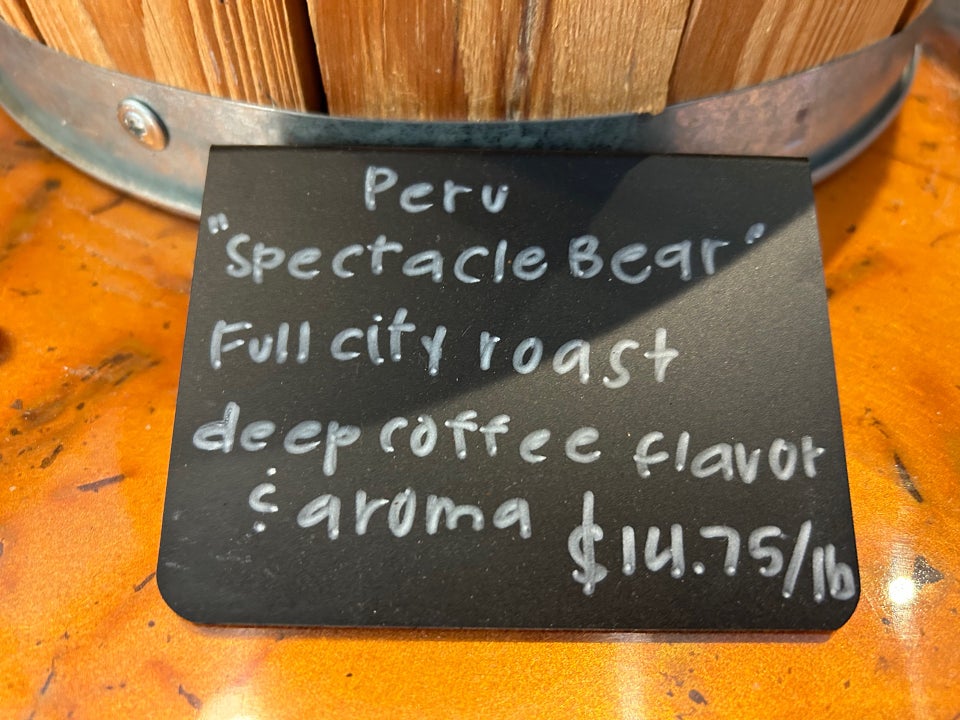 Peru
"Spectacle Bear"
Full city roast
deep coffee flavor
& aroma $14.75/lb